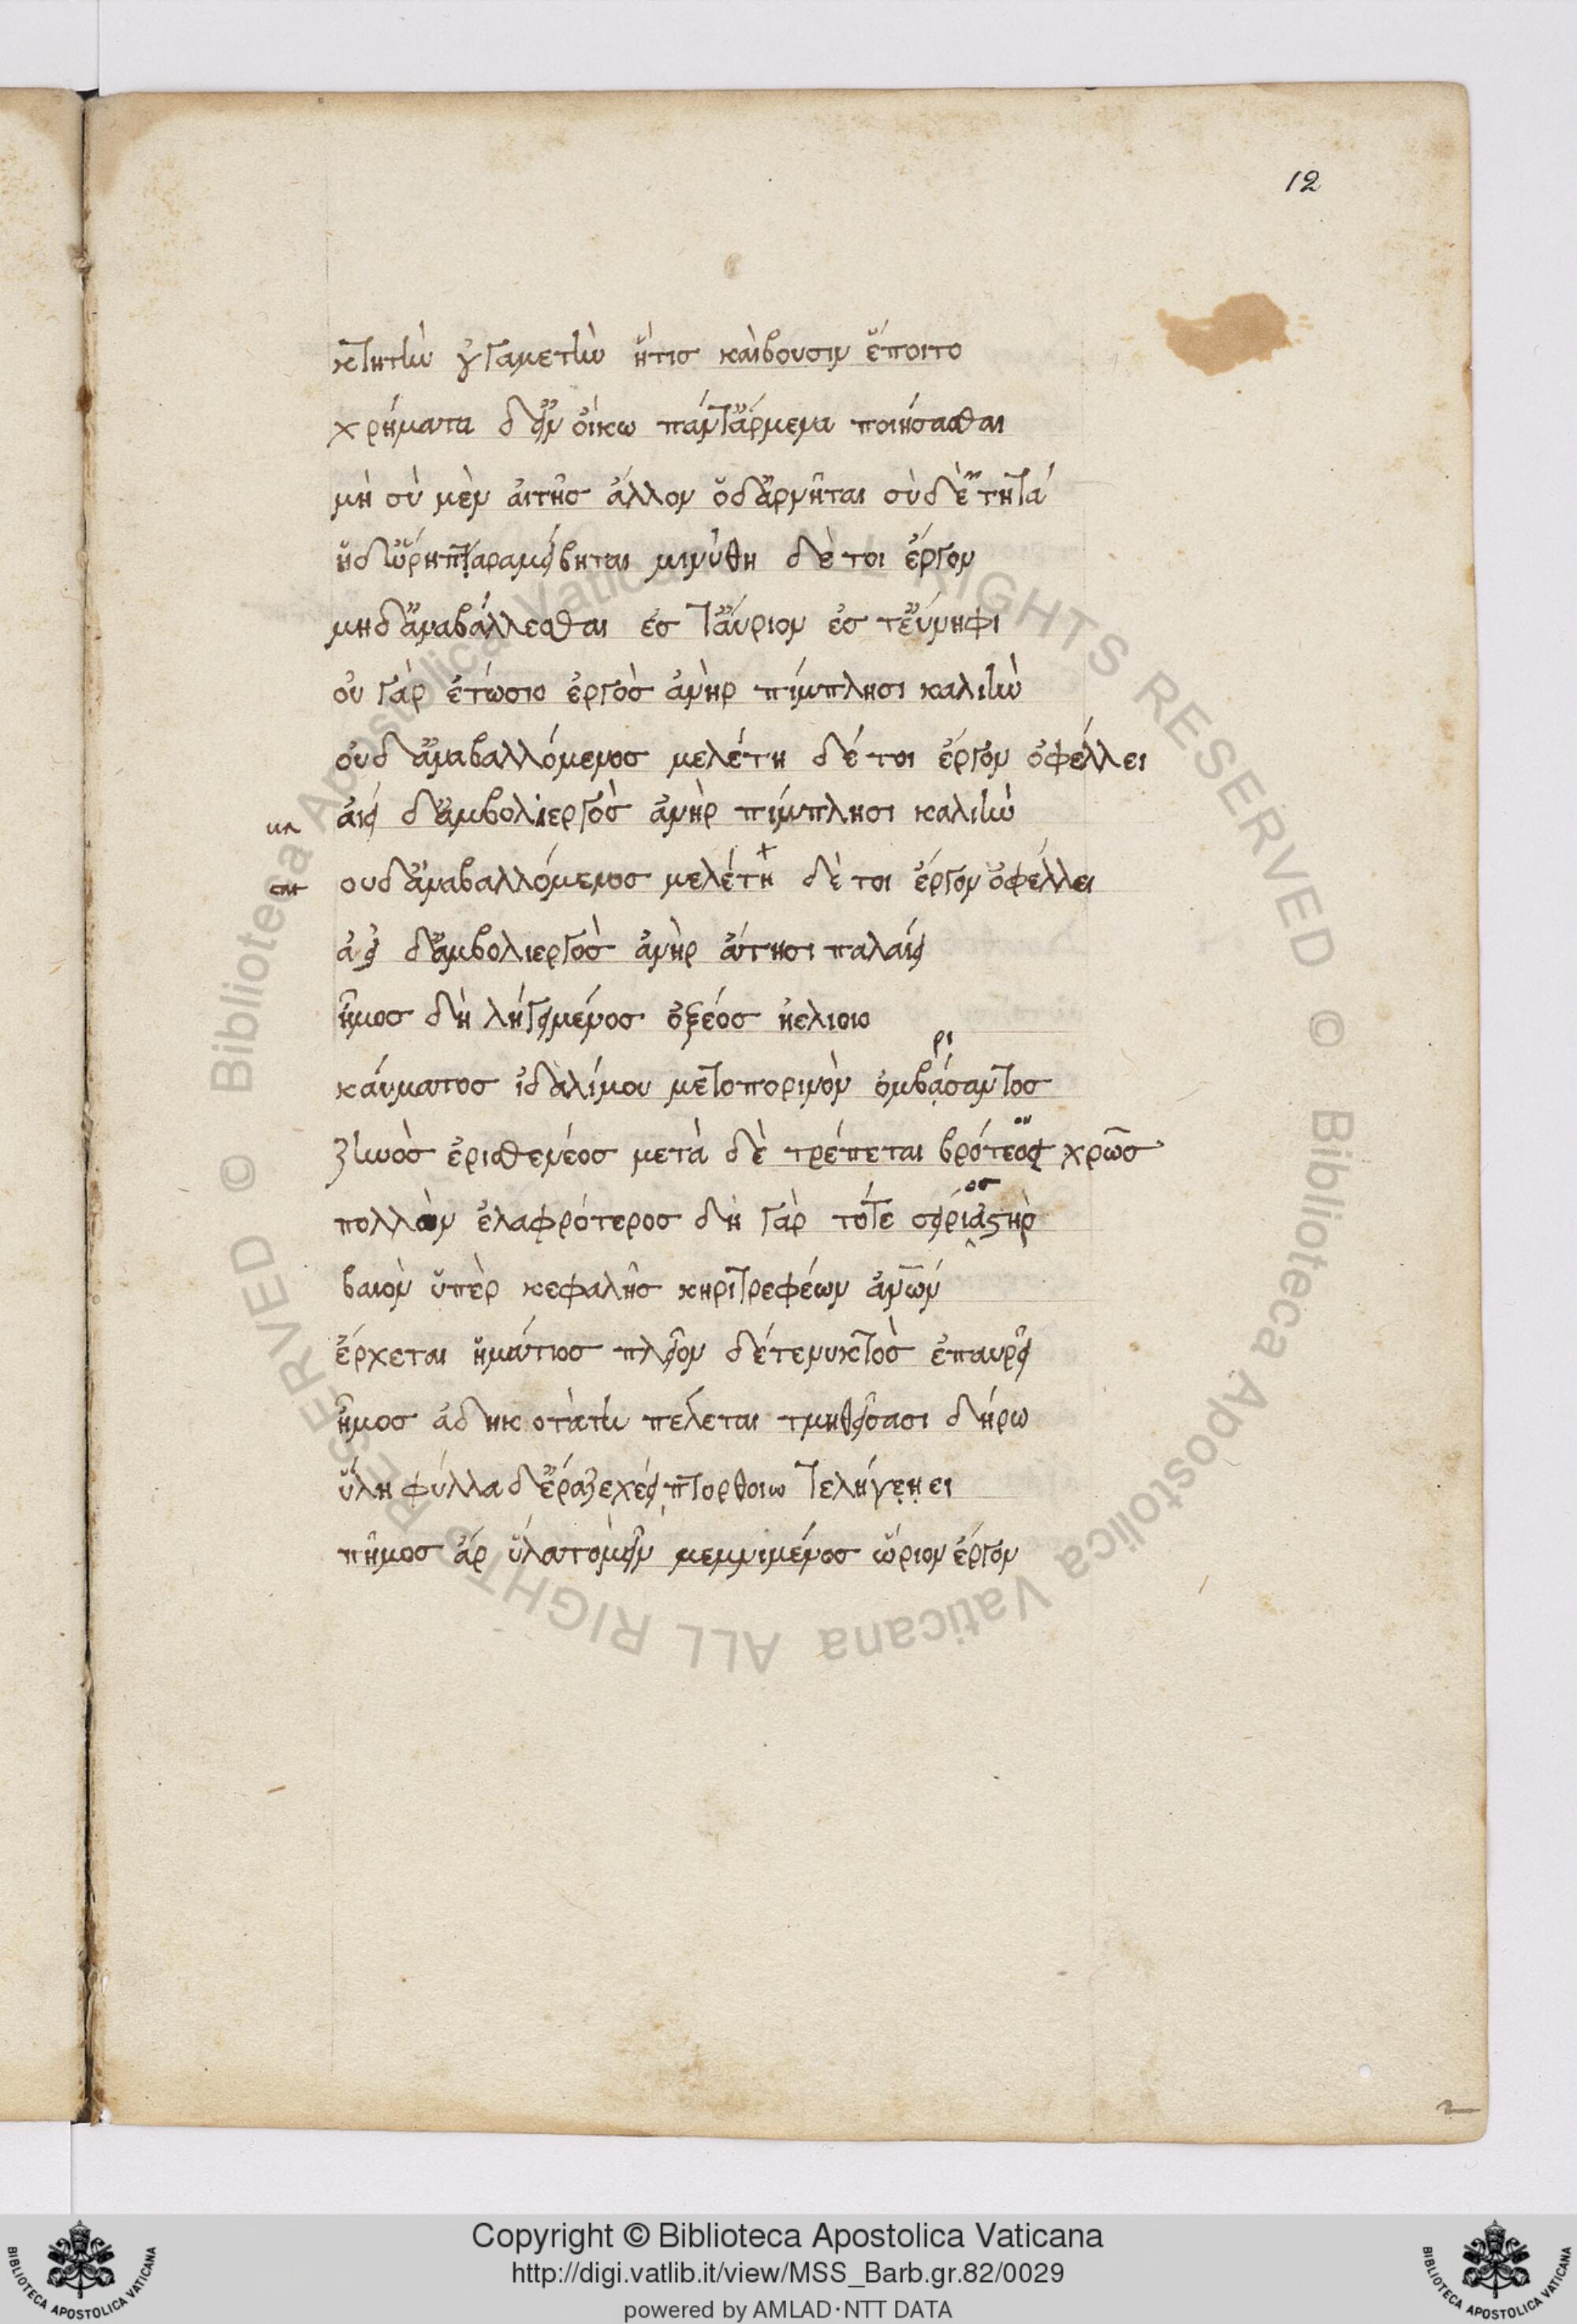 12
κτητὴν οὐ γαμετὴν ἥτισ καὶ βουσὶν ἕποιτο
χρήματα δ' εἰν οἴκω πάντ' ἄρμενα ποιήσασθαι
μὴ σὺ μὲν ἀιτῆσ ἄλλον ὅδ' ἀρνῆται σὺ δὲ τητᾶ
ἡδ' ὥρη παραμείβηται μινύθη δέ τοι ἔργον
μηδ' ἀναβάλλεσθαι ἐσ τ' ἄυριον ἐσ τ' ἔννηφι
οὐ γὰρ ἐτώσιο ἐργὸσ ἀνὴρ πίμπλησι καλιὴν
οὐδ' ἀναβαλλόμενοσ μελέτη δέ τοι ἔργον ὀφέλλει
ἀιεὶ δ' ἀμβολιεργὸσ ἀνὴρ πίμπλησι καλιὴν
ουδ' ἀναβαλλόμενοσ μελέτη δέ τοι ἔργον ὀφέλλει
ἀεὶ δ' ἀμβολιεργὸσ ἀνὴρ ἄτησι παλαίει
ἦμοσ δὴ λήγει μένοσ ὀξέοσ ἠελίοιο
κάυματοσ ἰδαλίμου μετοπορινὸν ὀμβρίσαντοσ
ζηνὸσ ἐρισθενέοσ μετὰ δὲ τρέπεται βρότεοσ χρὼσ
πολλὸν ἐλαφρότεροσ δὴ γὰρ τότε σείριοσ ἀστὴρ
βαιὸν ὑπὲρ κεφαλῆσ κηριτρεφέων ἀνων
ἔρχεται ἡμάτιοσ πλεῖον δέ τε νυκτὸσ ἐπαυρεῖ
ἦμοσ ἀδηκοτάτη πέλεται τμηθεῖσα σιδήρω
ὕλη φύλλα δ' ἔραζε χέει πτορθοιο τε λήγει
τῆμοσ ἄρ ὑλοτομεῖν μεμνιμένοσ ὥριον ἔργον
Copyright © Biblioteca Apostolica Vaticana
http://digi.vatlib.it/view/MSS_Barb.gr.82/0029
powered by AMLAD·NTT DATA